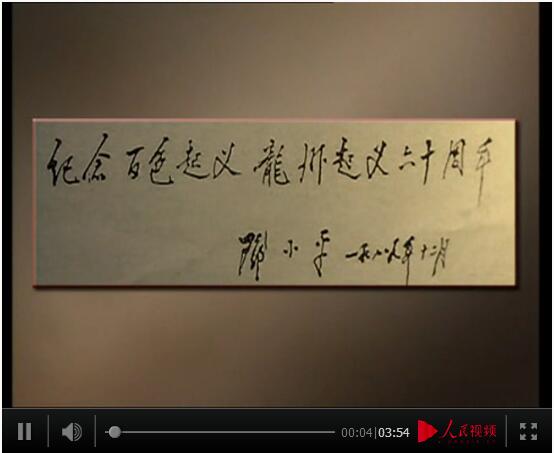 纪念百色起义 龍州起义六十周年
鄧小平 一九八九年十二月
00:04|03:54 人民视频